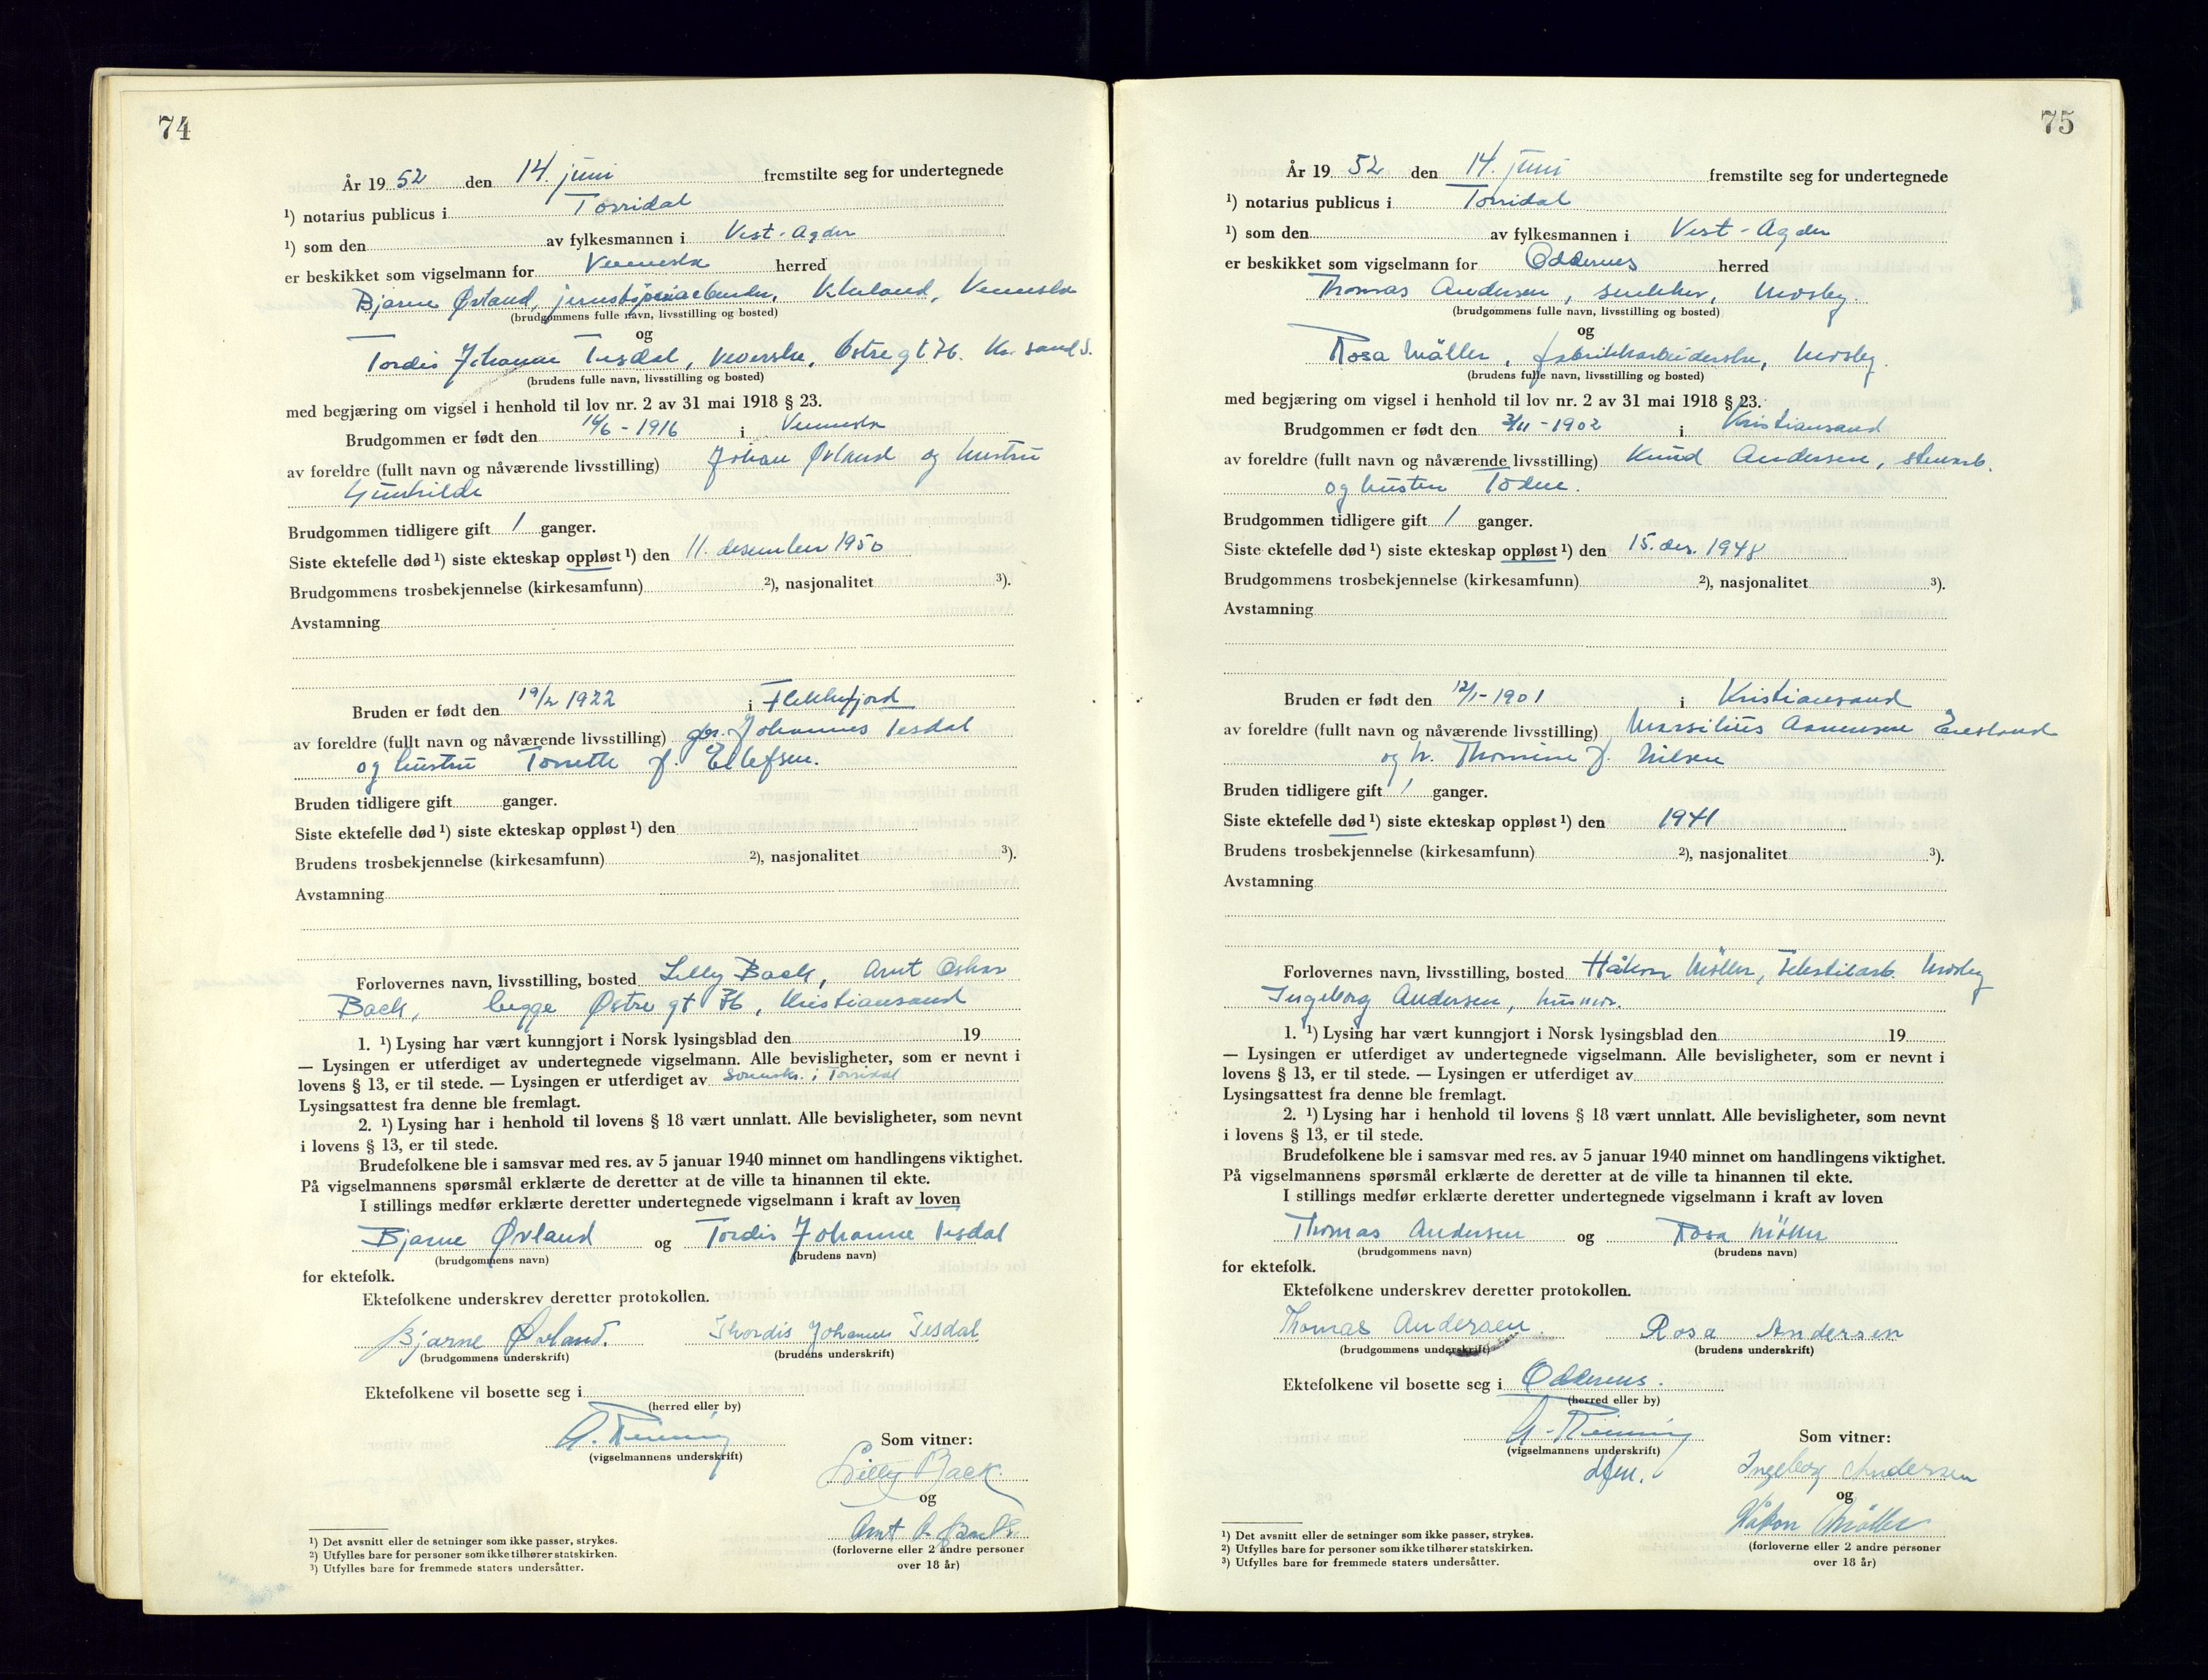 74
År 19 52 den 14. juni fremstilte seg for undertegnede
1) notarius publicus i Torridal
1) som den av fylkesmannen i Vest-Agder
er beskikket som vigselmann for Vennesla herred
Bjarne Øvland, Vennesla
(brudgommens fulle navn, livsstilling og bosted)
og
Tordis Johanne Tesdal, veverske, Østre gt 76. Kr. sand S.
(brudens fulle navn, livsstilling og bosted)
med begjæring om vigsel i henhold til lov nr. 2 av 31 mai 1918 § 23.
Brudgommen er født den 16/6 - 1916 i Vennesla
av foreldre (fullt navn og nåværende livsstilling) Johan Øvland og hustru
Gunhilde
Brudgommen tidligere gift 1 ganger.
Siste ektefelle død 1) siste ekteskap oppløst 1) den 11. desember 1950
Brudgommens trosbekjennelse (kirkesamfunn) 2), nasjonalitet 3).
Avstamning
Bruden er født den 19/2 1922 i Flekkefjord
av foreldre (fullt navn og nåværende livsstilling) Johannes Tesdal
og hustru Torette f. Ellefsen.
Bruden tidligere gift ganger.
Siste ektefelle død 1) siste ekteskap oppløst 1) den
Brudens trosbekjennelse (kirkesamfunn) 2), nasjonalitet 3).
Avstamning
Forlovernes navn, livsstilling, bosted Lilly Back, Arnt Oskar
Back, begge Østre gt 76, Kristiansand
1. 1) Lysing har vært kunngjort i Norsk lysingsblad den 19
— Lysingen er utferdiget av undertegnede vigselmann. Alle bevisligheter, som er nevnt i
lovens § 13, er til stede. — Lysingen er utferdiget av sorenskr. i Torridal
Lysingsattest fra denne ble fremlagt.
2. 1) Lysing har i henhold til lovens § 18 vært unnlatt. Alle bevisligheter, som nevnt
i lovens § 13, er til stede.
Brudefolkene ble i samsvar med res. av 5 januar 1940 minnet om handlingens viktighet.
På vigselmannens spørsmål erklærte de deretter at de ville ta hinannen til ekte.
I stillings medfør erklærte deretter undertegnede vigselmann i kraft av loven
Bjarne Øvland og Tordis Johanne Tesdal
(brudgommens navn) (brudens navn)
for ektefolk.
Ektefolkene underskrev deretter protokollen.
Bjarne Øvland. Thordis Johanne Tesdal
(brudgommens underskrift) (brudens underskrift)
Ektefolkene vil bosette seg i
(herred eller by)
(vigselmannens underskrift)
Som vitner:
Lilly Back.
og
Arnt O. Back.
(forloverne eller 2 andre personer
over 18 år)
1) Det avsnitt eller de setninger som ikke passer, strykes.
2) Utfylles bare for personer som ikke tilhører statskirken.
3) Utfylles bare for fremmede staters undersåtter.
75
År 19 52 den 14. juni fremstilte seg for undertegnede
1) notarius publicus i Torridal
1) som den av fylkesmannen i Vest-Agder
er beskikket som vigselmann for Oddernes herred
Thomas Andersen, snekker, Mosby.
(brudgommens fulle navn, livsstilling og bosted)
og
Rosa Möller, fabrikkarbeiderske, Mosby.
(brudens fulle navn, livsstilling og bosted)
med begjæring om vigsel i henhold til lov nr. 2 av 31 mai 1918 § 23.
Brudgommen er født den 3/11 - 1902 i Kristiansand
av foreldre (fullt navn og nåværende livsstilling) Knud Andersen, stenarb.
og hustru Todne.
Brudgommen tidligere gift 1 ganger.
Siste ektefelle død 1) siste ekteskap oppløst 1) den 15. des. 1948
Brudgommens trosbekjennelse (kirkesamfunn) 2), nasjonalitet 3).
Avstamning
Bruden er født den 12/1 - 1901 i Kristiansand
av foreldre (fullt navn og nåværende livsstilling) Marsilius Aanensen
og h. Thomine f. Nilsen
Bruden tidligere gift 1 ganger.
Siste ektefelle død 1) siste ekteskap oppløst 1) den 1941
Brudens trosbekjennelse (kirkesamfunn) 2), nasjonalitet 3).
Avstamning
Forlovernes navn, livsstilling, bosted Håkon Möller, Tekstilarb. Mosby
Ingeborg Andersen, husmor.
1. 1) Lysing har vært kunngjort i Norsk lysingsblad den 19
— Lysingen er utferdiget av undertegnede vigselmann. Alle bevisligheter, som er nevnt i
lovens § 13, er til stede. — Lysingen er utferdiget av
Lysingsattest fra denne ble fremlagt.
2. 1) Lysing har i henhold til lovens § 18 vært unnlatt. Alle bevisligheter, som nevnt
i lovens § 13, er til stede.
Brudefolkene ble i samsvar med res. av 5 januar 1940 minnet om handlingens viktighet.
På vigselmannens spørsmål erklærte de deretter at de ville ta hinannen til ekte.
I stillings medfør erklærte deretter undertegnede vigselmann i kraft av loven
Thomas Andersen og Rosa Möller
(brudgommens navn) (brudens navn)
for ektefolk.
Ektefolkene underskrev deretter protokollen.
Thomas Andersen. Rosa Andersen
(brudgommens underskrift) (brudens underskrift)
Ektefolkene vil bosette seg i Oddernes.
(herred eller by)
(vigselmannens underskrift)
Som vitner:
Ingeborg Andersen
og
Håkon Möller
(forloverne eller 2 andre personer
over 18 år)
1) Det avsnitt eller de setninger som ikke passer, strykes.
2) Utfylles bare for personer som ikke tilhører statskirken.
3) Utfylles bare for fremmede staters undersåtter.